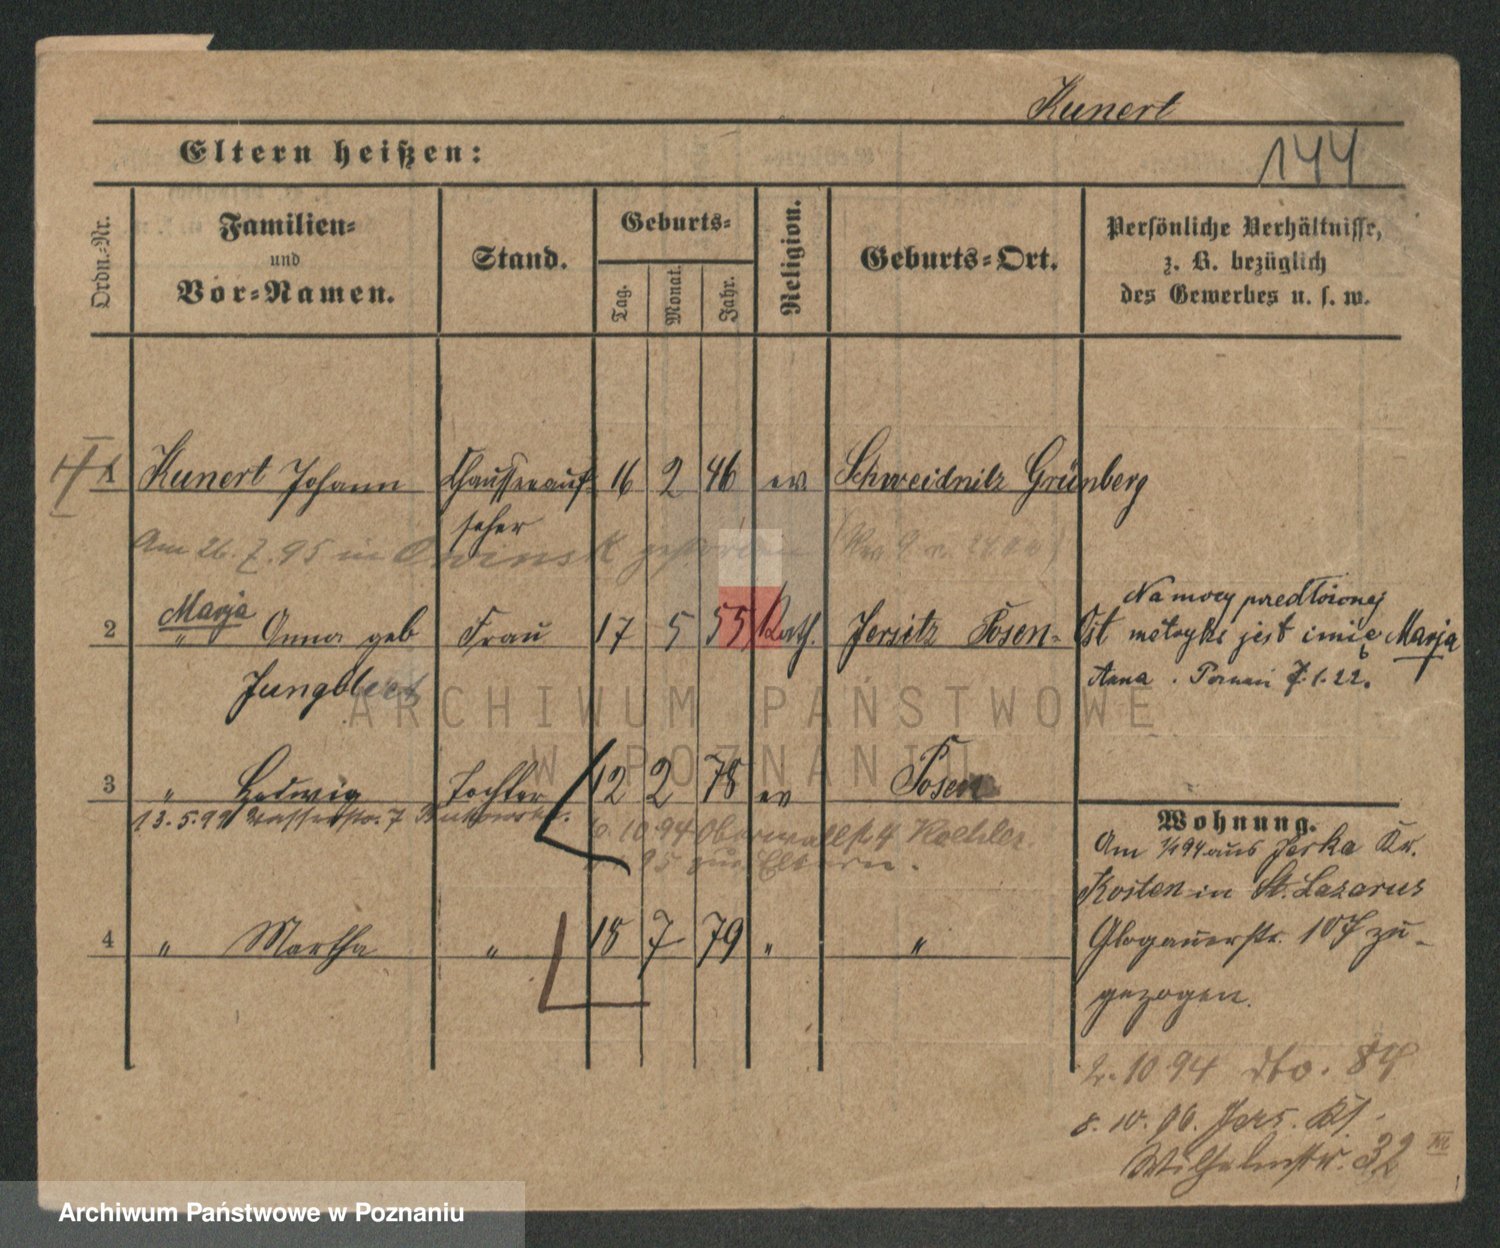 Kunert
144
Eltern heißen:
Ordn.-Nr.
Familien-
und
Vor-Namen.
Stand.
Geburts-
Tag.
Monat.
Jahr.
Religion.
Geburts-Ort.
Persönliche Verhältnisse,
z. B. bezüglich
des Gewerbes u. s. w.
1 Kunert Johann Chausseeauf- 16 2 46 ev. Schweidnitz Grünberg
seher
Am 26. 7. 95 in Owinsk gestorben
Marja
2 " Anna geb Frau 17 5 55 Kath. Jersitz Posen-Ost
Jungblut
Na mocy przedłożonej
metryki jest imię Marja
Anna. Poznań 7.1.22.
3 " Hedwig Tochter 12 2 78 ev Posen
13. 5. 99 Wasserstr. 7
6. 10 94 Oberwallstr. 4 Koehler.
95 zur Eltern.
4 " Martha " 18 7 79 " "
Wohnung.
Am 1/4 94 aus Jerka Kr.
Kosten in St. Lazarus
Glogauerstr. 107 zu-
gezogen.
2. 10 94 dto. 84
8. 10. 96. Jers. Kl.
Wilhelmstr. 32 III
ARCHIWUM PAŃSTWOWE
W POZNANIU
Archiwum Państwowe w Poznaniu